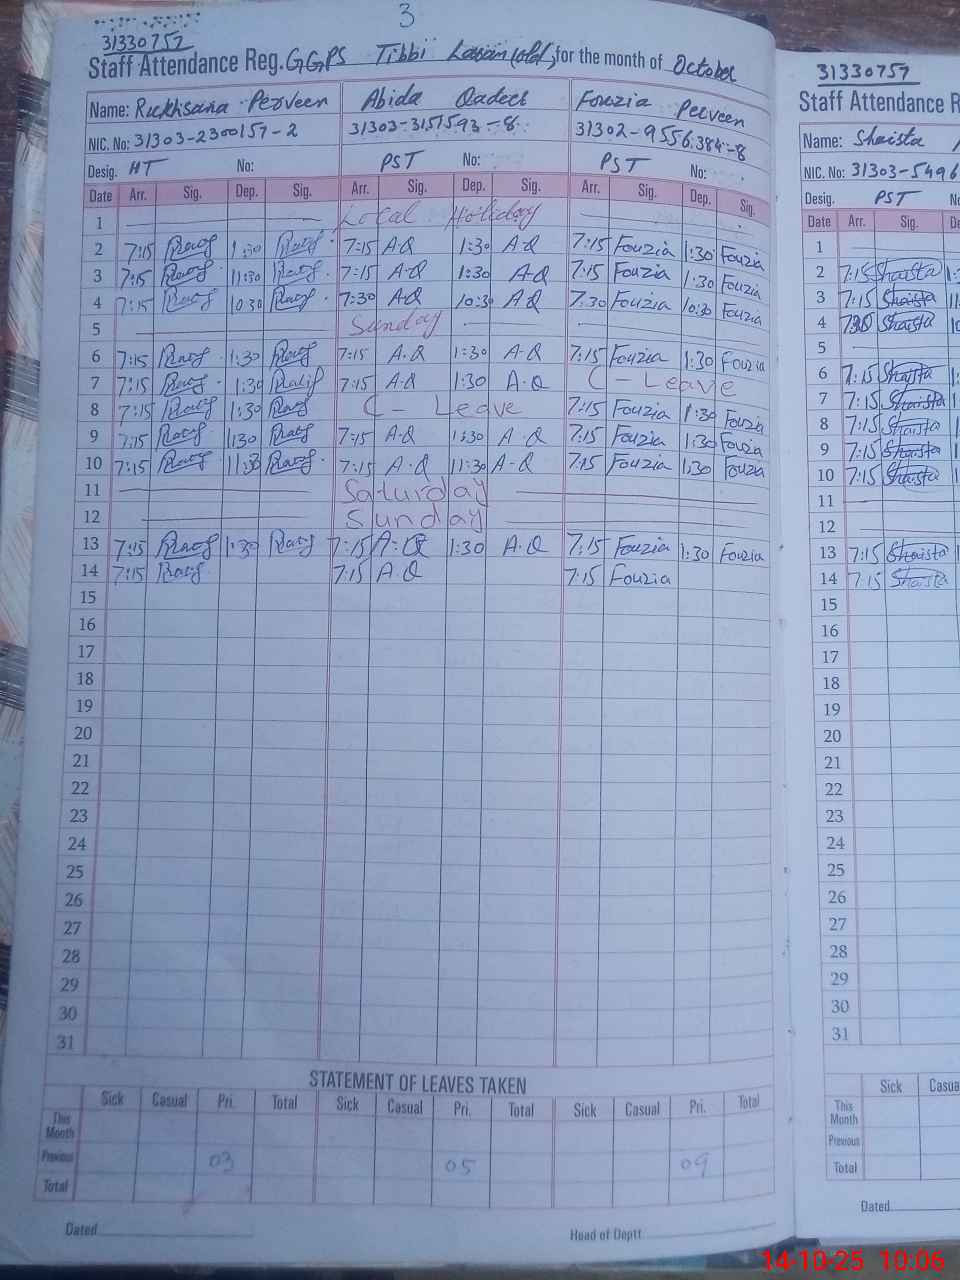 3
31330757
Staff Attendance Reg. GGPS Tibbi Lasari (old) for the month of October
Name: Rukhsana Perveen Abida Qadeer Fouzia Perveen
NIC. No: 31303-2300157-2 31303-3151593-8 31302-9556384-8
Desig. HT No: PST No: PST No:
Date Arr. Sig. Dep. Sig. Arr. Sig. Dep. Sig. Arr. Sig. Dep. Sig.
1 Local Holiday
2 7:15 1:30 7:15 A-Q 1:30 A-Q 7:15 Fouzia 1:30 Fouzia
3 7:15 11:30 7:15 A-Q 1:30 A-Q 7:15 Fouzia 1:30 Fouzia
4 7:15 10:30 7:30 A-Q 10:30 A-Q 7:30 Fouzia 10:30 Fouzia
5 Sunday
6 7:15 1:30 7:15 A-Q 1:30 A-Q 7:15 Fouzia 1:30 Fouzia
7 7:15 1:30 7:15 A-Q 1:30 A-Q C-Leave
8 7:15 1:30 C-Leave 7:15 Fouzia 1:30 Fouzia
9 7:15 1:30 7:15 A-Q 1:30 A-Q 7:15 Fouzia 1:30 Fouzia
10 7:15 11:30 7:15 A-Q 11:30 A-Q 7:15 Fouzia 1:30 Fouzia
11 Saturday
12 Sunday
13 7:15 1:30 7:15 A-Q 1:30 A-Q 7:15 Fouzia 1:30 Fouzia
14 7:15 7:15 A-Q 7:15 Fouzia
15
16
17
18
19
20
21
22
23
24
25
26
27
28
29
30
31
STATEMENT OF LEAVES TAKEN
Sick Casual Pri. Total Sick Casual Pri. Total Sick Casual Pri. Total
This Month
Previous 03 05 09
Total
Dated Head of Deptt
31330757
Staff Attendance R
Name: Shaista
NIC. No: 31303-5496
Desig. PST No
Date Arr. Sig. De
1
2 7:15 Shaista
3 7:15 Shaista
4 Shaista
5
6 7:15 Shaista
7 7:15 Shaista
8 7:15 Shaista
9 7:15 Shaista
10 7:15 Shaista
11
12
13 7:15 Shaista
14 7:15 Shaista
15
16
17
18
19
20
21
22
23
24
25
26
27
28
29
30
31
Sick Casua
This Month
Previous
Total
Dated
14-10-25 10:06